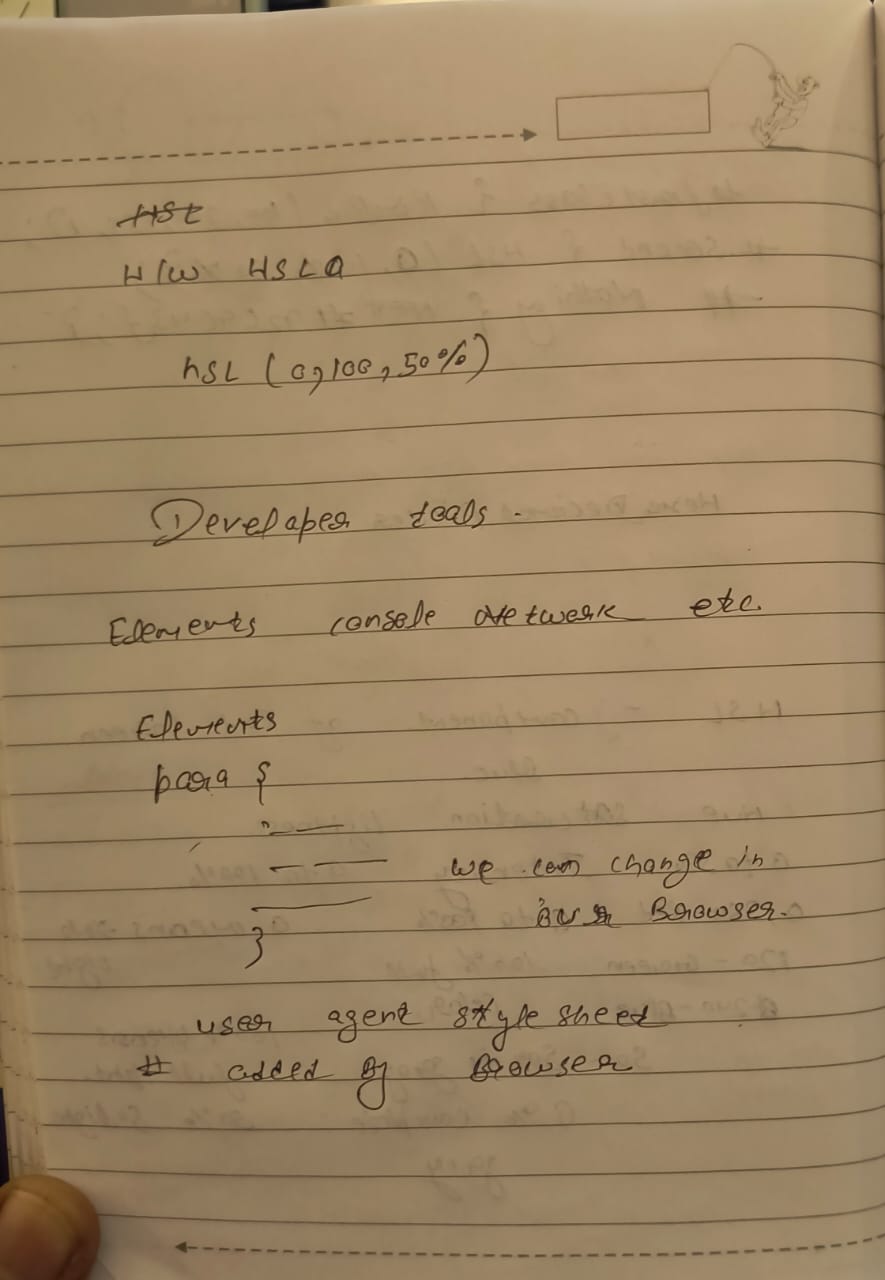 HSL
H/W HSLA
hSL (0,100,50%)
Developer tools.
Elements console Network etc.
Elements
para {
we can change in
our Browser.
}
user agent style sheet
# added By Browser